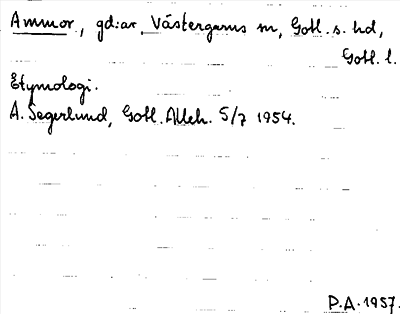 Ammor, gd:ar, Västergarns sn, Gotl. s. hd,
Gotl. l.
Etymologi.
A. Segerlund, Gotl. Alleh. 5/7 1954.
P.A. 1957.